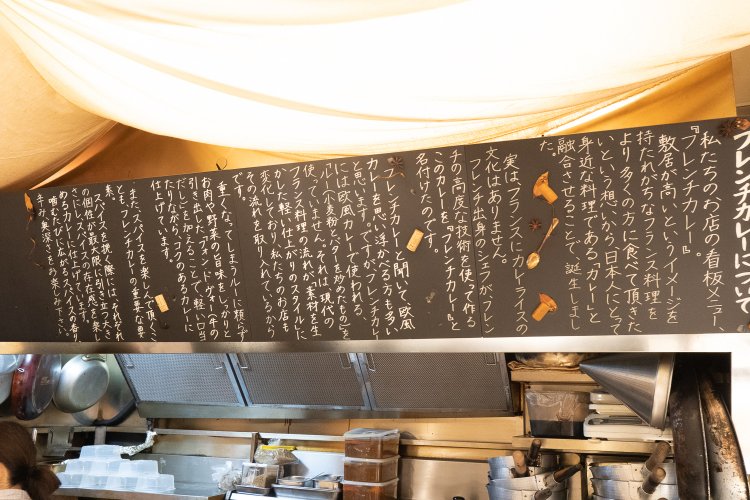 フレンチカレーについて
私たちのお店の看板メニュー、
『フレンチカレー』。
敷居が高いというイメージを
持たれがちなフランス料理を
より多くの方に食べて頂きた
いという想いから、日本人にとって
身近な料理である、「カレー」と
融合させることで、誕生しまし
た。
実はフランスにカレーライスの
文化はありません。
フレンチ出身のシェフが、フレン
チの高度な技術を使って作る
このカレーを『フレンチカレー』と
名付けたのです。
フレンチカレーと聞いて、欧風
カレーを思い浮かべる方も多い
と思います。ですが、フレンチカレー
には欧風カレーで使われる
ルー(小麦粉とバターを炒めたもの)を
使っていません。それは、現代の
フランス料理の流れが、素材を生
かした軽い仕上がりのスタイルに
変化しており、私たちのお店も
その流れを取り入れているから
です。
重くなってしまうルーに頼らず、
お肉や野菜の旨味をしっかりと
引き出した、『フォンドヴォー(牛の
だし)』を加えることで、軽い口当
たりながら、コクのあるカレーに
仕上げています。
また、スパイスを楽しんで頂くこ
とも、フレンチカレーの重要な要
素。
スパイスを挽く際には、それぞれ
の個性が最大限に引き立つ大き
さにし、スパイスの存在感を楽し
めるカレーに仕上げています。
噛むたびに広がるスパイスの香り
や味、奥深さをお楽しみ下さい。